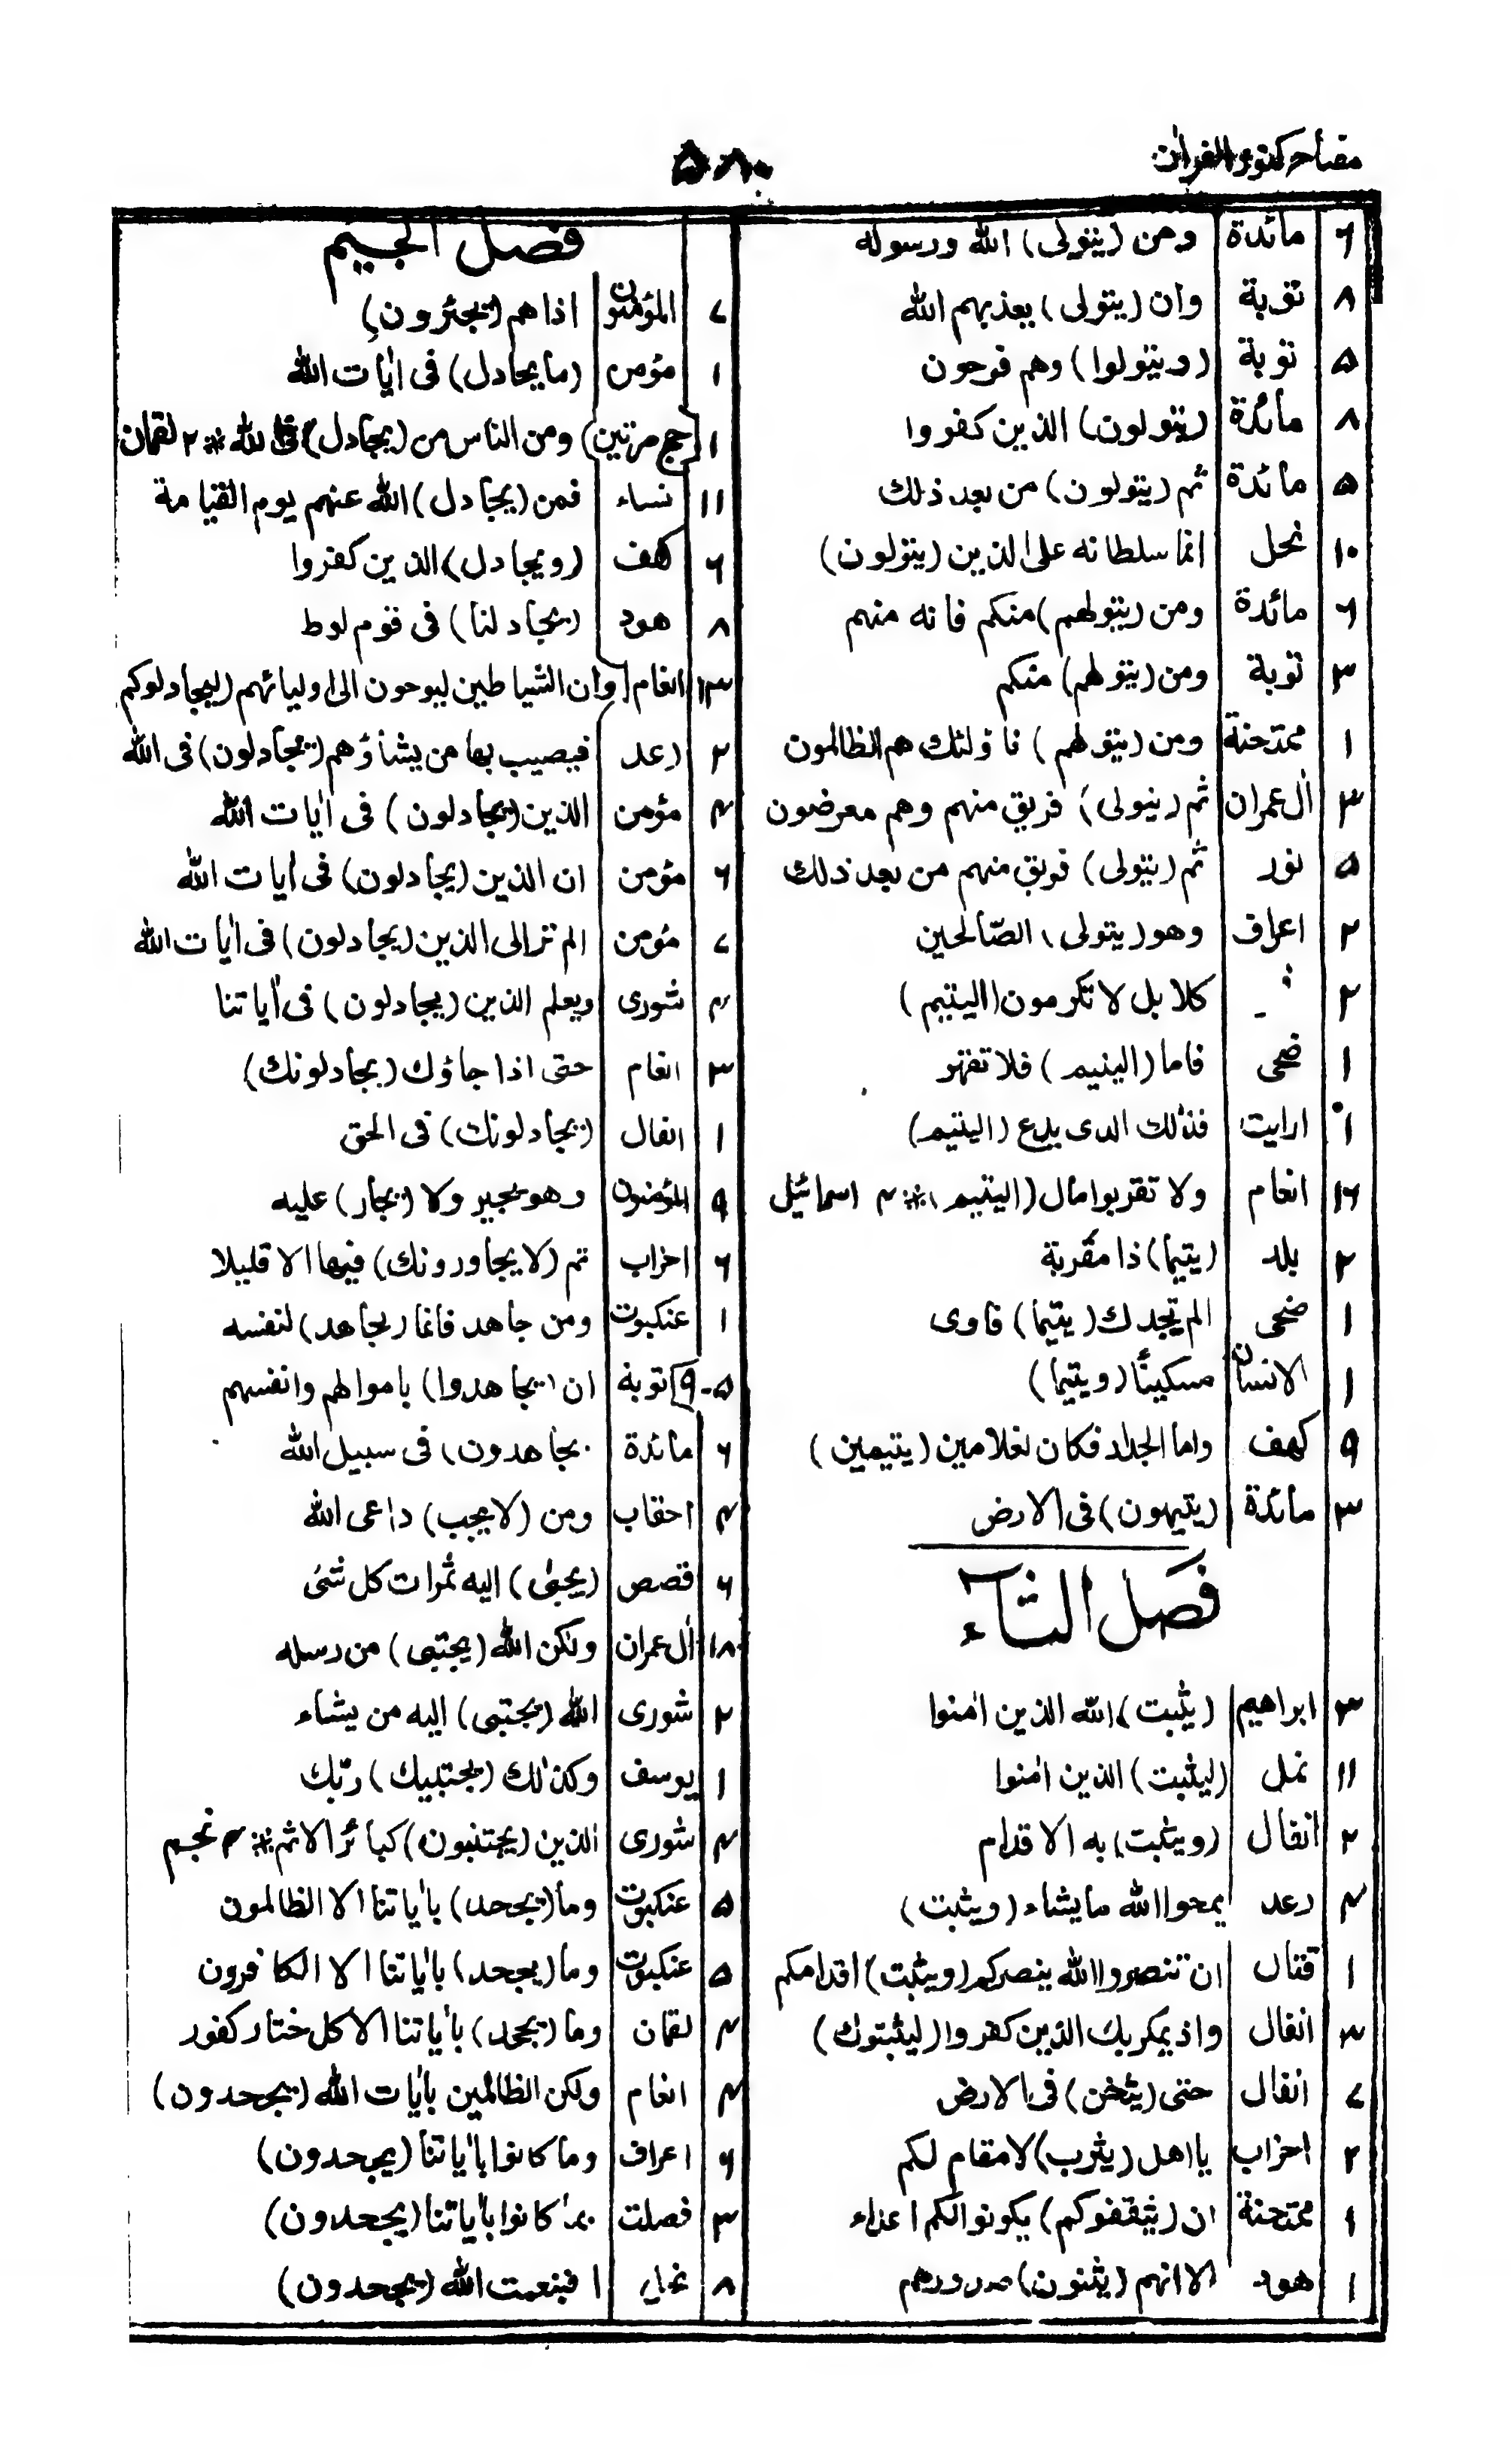 مفتاح كنوز القران
۵۸۰
۶ مائدة ومن (يتولى) الله ورسوله
۸ توبة وان (يتولى) يعذبهم الله
۵ توبة (ويتولوا) وهم فرحون
۸ مائدة (يتولون) الذين كفروا
۵ مائدة ثم (يتولون) من بعد ذلك
۱۰ نحل انما سلطانه على الذين (يتولون)
۶ مائدة ومن (يتولهم) منكم فانه منهم
۳ توبة ومن (يتولهم) منكم
۱ ممتحنة ومن (يتولهم) فاولئك هم الظالمون
۳ اٰل عمران ثم (يتولى) فريق منهم وهم معرضون
۵ نور ثم (يتولى) فريق منهم من بعد ذلك
۲ اعراف وهو (يتولى) الصّالحين
۲ كلا بل لا تكرمون (اليتيم)
۱ ضحى فاما (اليتيم) فلا تقهر
۱ ارايت فذٰلك الذى يدع (اليتيم)
۱۶ انعام ولا تقربوا مال (اليتيم) ※ ۴ اسرائيل
۲ بلد (يتيما) ذا مقربة
۱ ضحى الم يجدك (يتيما) فاوى
۱ الانسان مسكينًا (ويتيما)
۹ كهف واما الجدار فكان لغلامين (يتيمين)
۳ مائدة (يتيهون) فى الارض
فصل الثاء
۳ ابراهيم (يثبت) الله الذين اٰمنوا
۱۱ نمل (ليثبت) الذين اٰمنوا
۲ انفال (ويثبت) به الاقدام
۴ رعد يمحوا الله ما يشاء (ويثبت)
۱ قتال ان تنصروا الله ينصركم (ويثبت) اقدامكم
۳ انفال واذ يمكر بك الذين كفروا (ليثبتوك)
۷ انفال حتى (يثخن) فى الارض
۲ احزاب يا اهل (يثرب) لا مقام لكم
۱ ممتحنة ان (يثقفوكم) يكونوا لكم اعداء
۱ هود الا انهم (يثنون) صدورهم
فصل الجيم
۷ المؤمنون اذا هم (يجئرون)
۱ مؤمن (ما يجادل) فى اٰيات الله
۱ [حج مرتين) ومن الناس من (يجادل) فى الله ※ ۲ لقمان
۱۱ نساء فمن (يجادل) الله عنهم يوم القيامة
۶ كهف (ويجادل) الذين كفروا
۸ هود (يجادلنا) فى قوم لوط
۱۴ انعام [وان الشياطين ليوحون الى اوليائهم (ليجادلوكم
۲ رعد فيصيب بها من يشاء وهم (يجادلون) فى الله
۴ مؤمن الذين (يجادلون) فى اٰيات الله
۶ مؤمن ان الذين (يجادلون) فى اٰيات الله
۷ مؤمن الم تر الى الذين (يجادلون) فى اٰيات الله
۴ شورى ويعلم الذين (يجادلون) فى اٰياتنا
۳ انعام حتى اذا جاؤك (يجادلونك)
۱ انفال (يجادلونك) فى الحق
۹ المؤمنون وهو يجير ولا (يجار) عليه
۶ احزاب ثم (لا يجاورونك) فيها الا قليلا
۱ عنكبوت ومن جاهد فانما (يجاهد) لنفسه
۵-۹] توبة ان (يجاهدوا) باموالهم وانفسهم
۶ مائدة يجاهدون) فى سبيل الله
۴ احقاب ومن (لا يجب) داعى الله
۶ قصص (يجبى) اليه ثمرات كل شئ
۱۸ اٰل عمران ولكن الله (يجتبى) من رسله
۲ شورى الله (يجتبى) اليه من يشاء
۱ يوسف وكذٰلك (يجتبيك) ربّك
۴ شورى الذين (يجتنبون) كبائر الاثم ※ ۲ نجم
۵ عنكبوت وما (يجحد) باٰياتنا الا الظالمون
۵ عنكبوت وما (يجحد) باٰياتنا الا الكافرون
۴ لقمان وما (يجحد) باٰياتنا الا كل ختار كفور
۴ انعام ولكن الظالمين باٰيات الله (يجحدون)
۶ اعراف وما كانوا باٰياتنا (يجحدون)
۳ فصلت بما كانوا باٰياتنا (يجحدون)
۸ نحل افبنعمت الله (يجحدون)